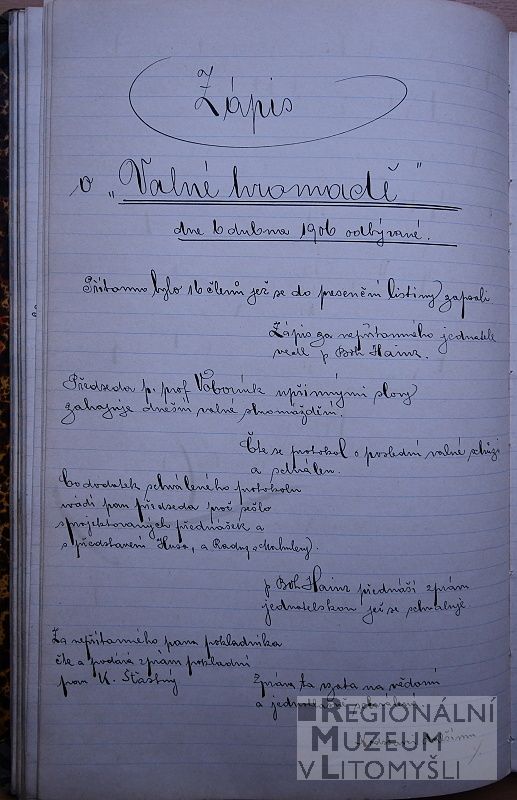 Zápis
o „Valné hromadě"
dne 6 dubna 1906 odbývané.
Přítomno bylo 16 členů jež se do presenční listiny zapsali
Zápis za nepřítomného jednatele
vedl p Boh Hainz.
Předseda p. prof. Voborník upřímnými slovy
zahajuje dnešní valné shromáždění.
Čte se protokol o poslední valné schůzi
a schválen.
Co dodatek schváleného protokolu
uvádí pan předseda proč sešlo
s projektovaných přednášek a
s představení Husa, a Radúz a Mahulena).
p Boh Hainz přednáší zprávu
jednatelskou jež se schvaluje
Za nepřítomného pana pokladníka
čte a podává zprávu pokladní
pan K. Šťastný
Zpráva ta vzata na vědomí
a
REGIONÁLNÍ
MUZEUM
V LITOMYŠLI